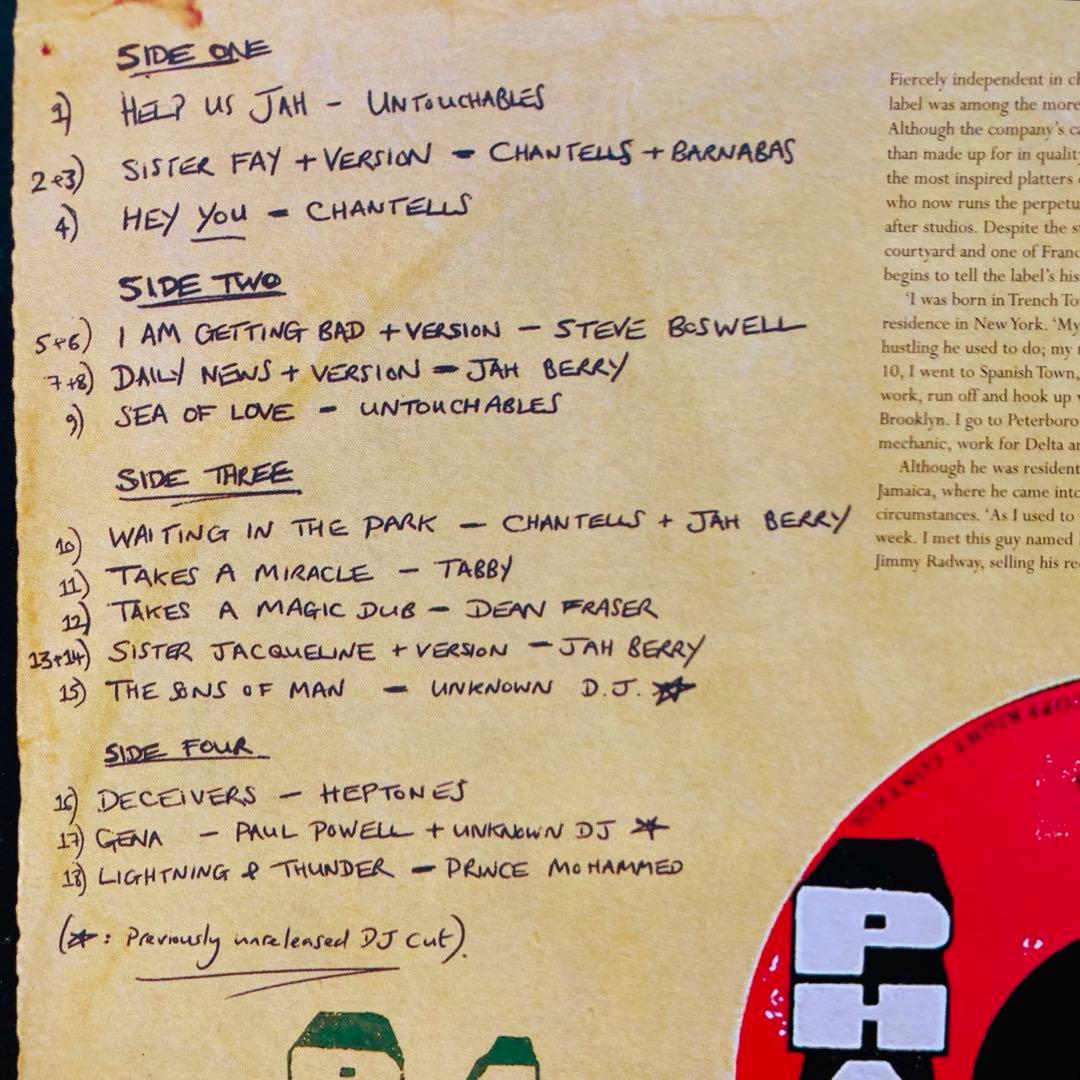 SIDE ONE
1) HELP US JAH - UNTOUCHABLES
2+3) SISTER FAY + VERSION - CHANTELLS + BARNABAS
4) HEY YOU - CHANTELLS
SIDE TWO
5+6) I AM GETTING BAD + VERSION - STEVE BOSWELL
7+8) DAILY NEWS + VERSION - JAH BERRY
9) SEA OF LOVE - UNTOUCHABLES
SIDE THREE
10) WAITING IN THE PARK - CHANTELLS + JAH BERRY
11) TAKES A MIRACLE - TABBY
12) TAKES A MAGIC DUB - DEAN FRASER
13+14) SISTER JACQUELINE + VERSION - JAH BERRY
15) THE SONS OF MAN - UNKNOWN D.J. ★
SIDE FOUR
16) DECEIVERS - HEPTONES
17) GENA - PAUL POWELL + UNKNOWN DJ ★
18) LIGHTNING & THUNDER - PRINCE MOHAMMED
(★: Previously unreleased DJ cut).
Fiercely independent in
label was among the more
Although the company's
than made up for in
the most inspired platters
who now runs the
after studios. Despite the
courtyard and one of
begins to tell the label's
'I was born in Trench
residence in New York. 'My
hustling he used to do; my
10, I went to Spanish Town,
work, run off and hook up
Brooklyn. I go to
mechanic, work for Delta
Although he was resident
Jamaica, where he came into
circumstances. 'As I used to
week. I met this guy named
Jimmy Radway, selling his
COPYRIGHT CONTROL
PH